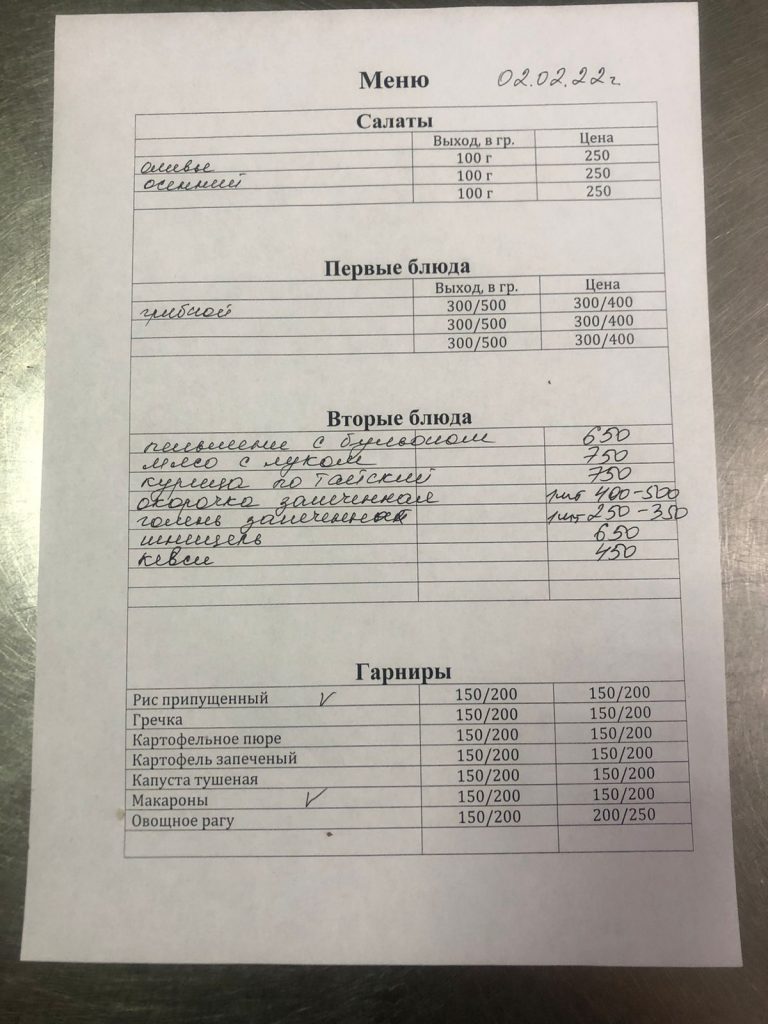 Меню 02.02.22г.
Салаты
Выход, в гр. Цена
оливье 100 г 250
осенний 100 г 250
100 г 250
Первые блюда
Выход, в гр. Цена
грибной 300/500 300/400
300/500 300/400
300/500 300/400
Вторые блюда
пельмение с бульоном 650
мясо с луком 750
курица по тайский 750
окорочка запеченная 400-500
голень запеченная 250-350
шницель 650
кевси 450
Гарниры
Рис припущенный √ 150/200 150/200
Гречка 150/200 150/200
Картофельное пюре 150/200 150/200
Картофель запеченый 150/200 150/200
Капуста тушеная 150/200 150/200
Макароны √ 150/200 150/200
Овощное рагу 150/200 200/250